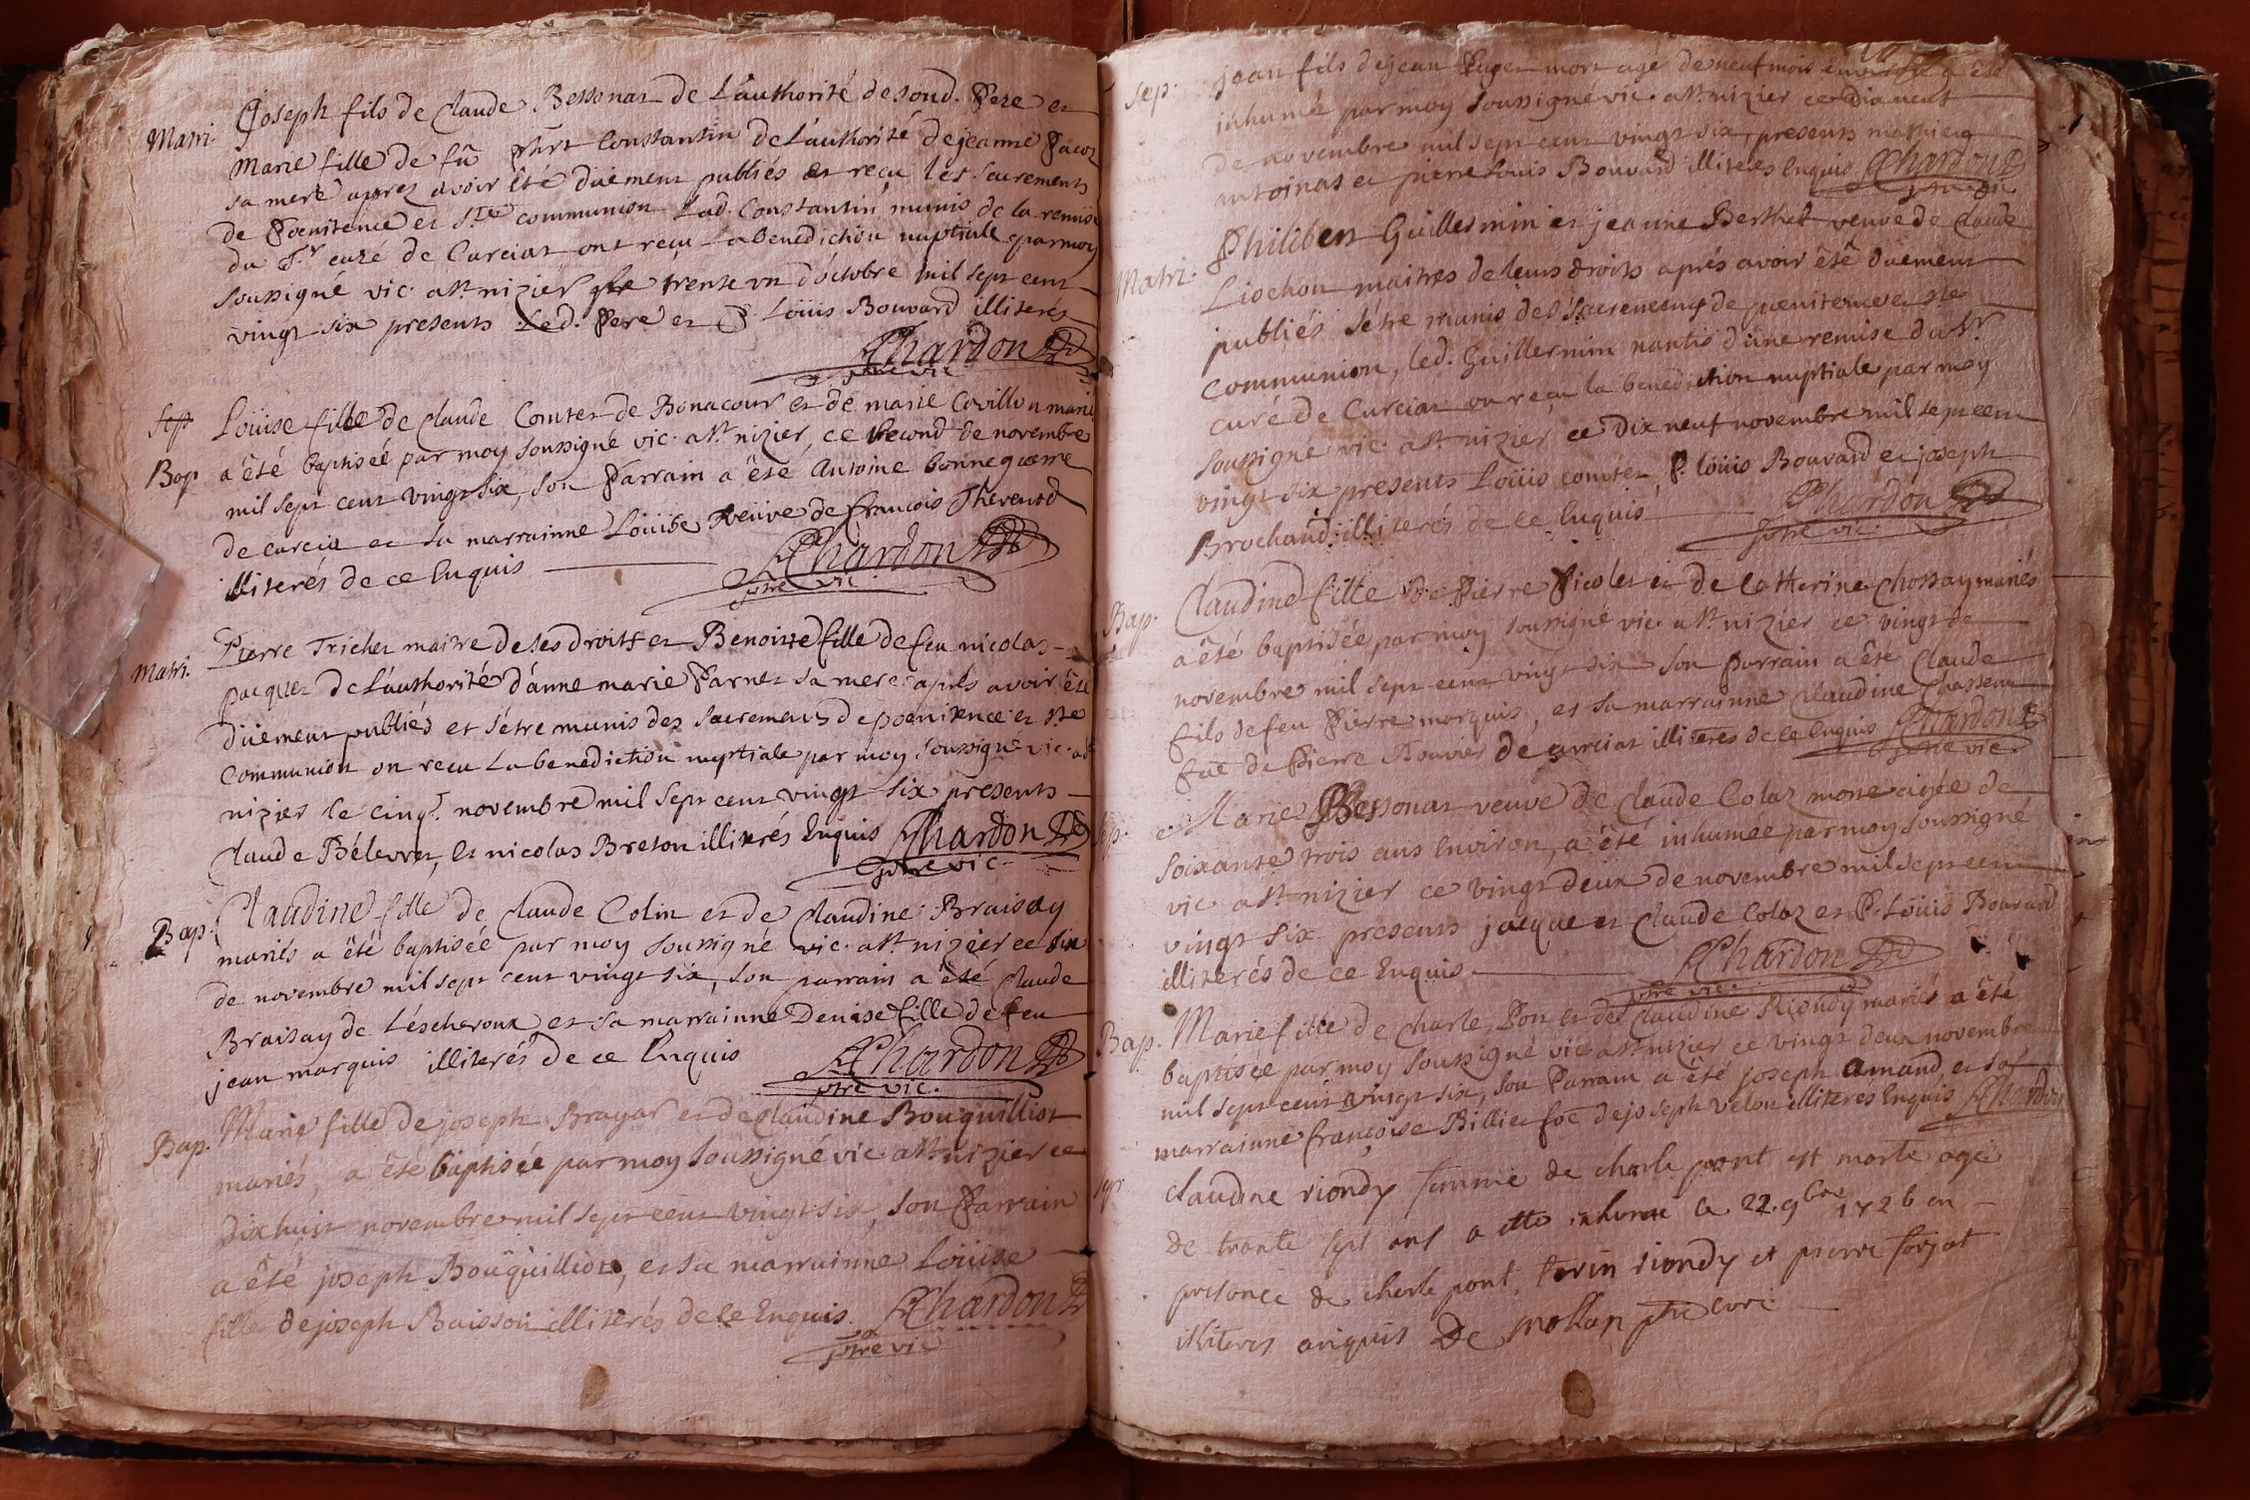 Matri. Joseph fils de Claude Bessonat de L'authorité de sond. Pere et
Marie fille de fû phrt Constantin de L'authorité de jeanne Pacoz
sa mere aprez avoir êté düement publiés et reçu les sacrements
de Poenitence et Ste communion Lad. Constantin munis de la remise
du Sr curé de Curciat ont reçu La benediction nuptiale par moy
soussigné vic. a St nizier le trente un d'octobre mil sept cent
vingt six presents Led. Pere et P. Loüis Bouvard illiterés
Chardon
ptre vic
Sep
Bap
Loüise fille de Claude Comtet de Bonacour et de marie Covillon mariés
a êté baptisée par moy soussigné vic. a St nizier, ce second de novembre
mil sept cent vingt six, son Parrain a êté Antoine bonneguerre
de curcia et sa marrainne Loüise veüve de françois Thevenod
illiterés de ce Enquis
Chardon
ptre vic.
Matri. Pierre Trichet maitre de ses droits et Benoitte fille de feu nicolas
pacquet de L'authorité d'anne marie Parnet sa mere aprés avoir êté
düement publiés et s'étre munis des sacrements de poenitence et Ste
Communion on recu La benediction nuptiale par moy soussigné vic. a St
nizier le cinqr. novembre mil sept cent vingt six presents
Claude Bélevret, et nicolas Breton illiterés Enquis Chardon
ptre vic.
Bap. Claudine fille de Claude Colin et de Claudine Braisay
mariés a êté baptisée par moy soussigné vic. a St nizier ce six
de novembre mil sept cent vingt six, son parrain a êté Claude
Braisay de Léscheroux et sa marrainne Denise fille de feu
jean marquis illiterés de ce Enquis
Chardon
ptre vic.
Bap. Marie fille de joseph Brayar et de Claudine Bouquilliot
mariés, a êté baptisée par moy soussigné vic. a St nizier ce
dixhuit novembre mil sept cent vingt six, son Parrain
a êté joseph Boüquilliot, et sa marrainne Loüise
fille de joseph Buisson illiterés de ce Enquis Chardon
ptre vic
Sep. jean fils de jean Puget mort agé de neuf mois environ a êté
inhumé par moy soussigné vic. a St nizier ce
de novembre mil sept cent vingt six, presents mathieu
antoinat et pierre Louis Bouvard illiterés Enquis Chardon
ptre vic.
Matri. Philibert Guillermin et jeanne Berthet veuve de Claude
Liochon maitres de leurs droits aprés avoir êtê düement
publiés s'étre munis des sacrements de poenitence et Ste
Communion, led. Guillermin nantis d'une remise du Sr.
curé de Curciat on reçu la benediction nuptiale par moy
soussigné vic. a St nizier ce Dix neuf novembre mil sept cent
vingt six presents Loüis comtet, P. loüis Bouvard, et joseph
Brochand illiterés de ce Enquis
Chardon
ptre vic.
Bap. Claudine fille de Pierre Picolet et de Catherine Chossay mariés
a êté baptisée par moy soussigné vic. a St nizier ce vingt de
novembre mil sept cent vingt six son parrain a êté Claude
fils de feu Pierre morquis, et sa marrainne Claudine
de Pierre de curciat illiterés de ce Enquis Chardon
ptre vic.
Sep. Marie Bessonat veuve de Claude Colaz morte agée de
soixante trois ans Environ, a êté inhumée par moy soussigné
vic. a St nizier ce vingt deux de novembre mil sept cent
vingt six presents jacque et Claude Colaz et P. Loüis Bouvard
illiterés de ce Enquis
Chardon
ptre vic.
Bap. Marie fille de Charle Pon et de Claudine Riondy mariés a êté
baptisée par moy soussigné vic a St nizier ce vingt deux novembre
mil sept cent vingt six, son Parrain a êté joseph Amand, et sa
marrainne françoise Billiet foe de joseph velon illiterés Enquis Chardon
Sepr claudine riondy femme de charle pont est morte age
de trante sept ans a ette inhume le 22. 9bre 1726 en
presance de charle pont, riondy et pierre forjat
illiteres anquis De mollan ptre curé